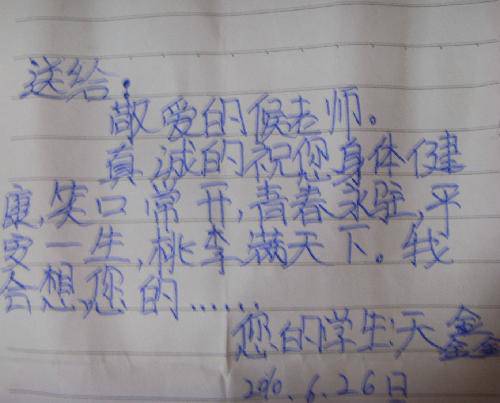 送给:
敬爱的候老师。
真诚的祝您身体健
康,笑口常开,青春永驻,平
安一生,桃李满天下。我
会想您的......
您的学生:天鑫
2010.6.26日